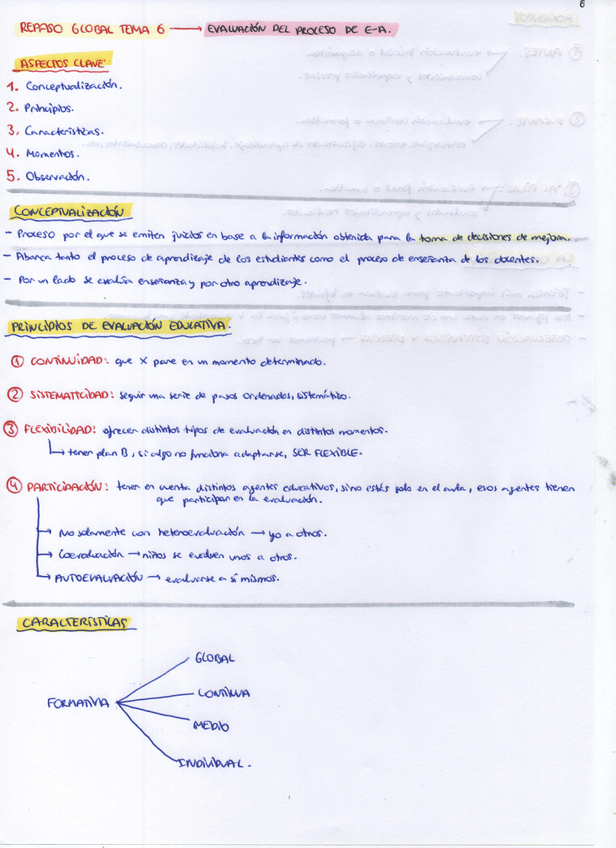 6
REPASO GLOBAL TEMA 6 → EVALUACIÓN DEL PROCESO DE E-A.
ASPECTOS CLAVE:
1. Conceptualización.
2. Principios.
3. Características.
4. Momentos.
5. Observación.
CONCEPTUALIZACIÓN
- Proceso por el que se emiten juicios en base a la información obtenida para la toma de decisiones de mejora.
- Abarca tanto el proceso de aprendizaje de los estudiantes como el proceso de enseñanza de los docentes.
- Por un lado se evalúa enseñanza y por otro aprendizaje.
PRINCIPIOS DE EVALUACIÓN EDUCATIVA.
① CONTINUIDAD: que X pare en un momento determinado.
② SISTEMATICIDAD: seguir una serie de pasos ordenados, sistemático.
③ FLEXIBILIDAD: ofrecer distintos tipos de evaluación en distintos momentos.
↳ tener plan B, si algo no funciona adaptarse, SER FLEXIBLE.
④ PARTICIPACIÓN: tener en cuenta distintos agentes educativos, si no estás solo en el aula, esos agentes tienen
que participar en la evaluación.
→ No solamente con heteroevaluación → yo a otros.
→ Coevaluación → niños se evalúen unos a otros.
→ AUTOEVALUACIÓN → evaluarse a sí mismos.
CARACTERÍSTICAS
GLOBAL
FORMATIVA
CONTINUA
MEDIO
INDIVIDUAL.